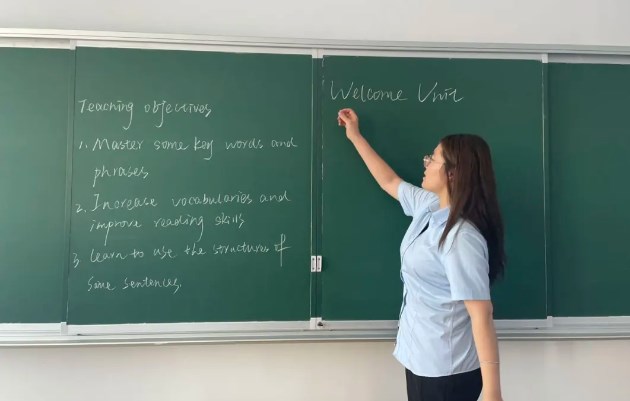 Teaching objectives
1. Master some key words and
phrases
2. Increase vocabularies and
improve reading skills
3. learn to use the structures of
some sentences.
Welcome Unit